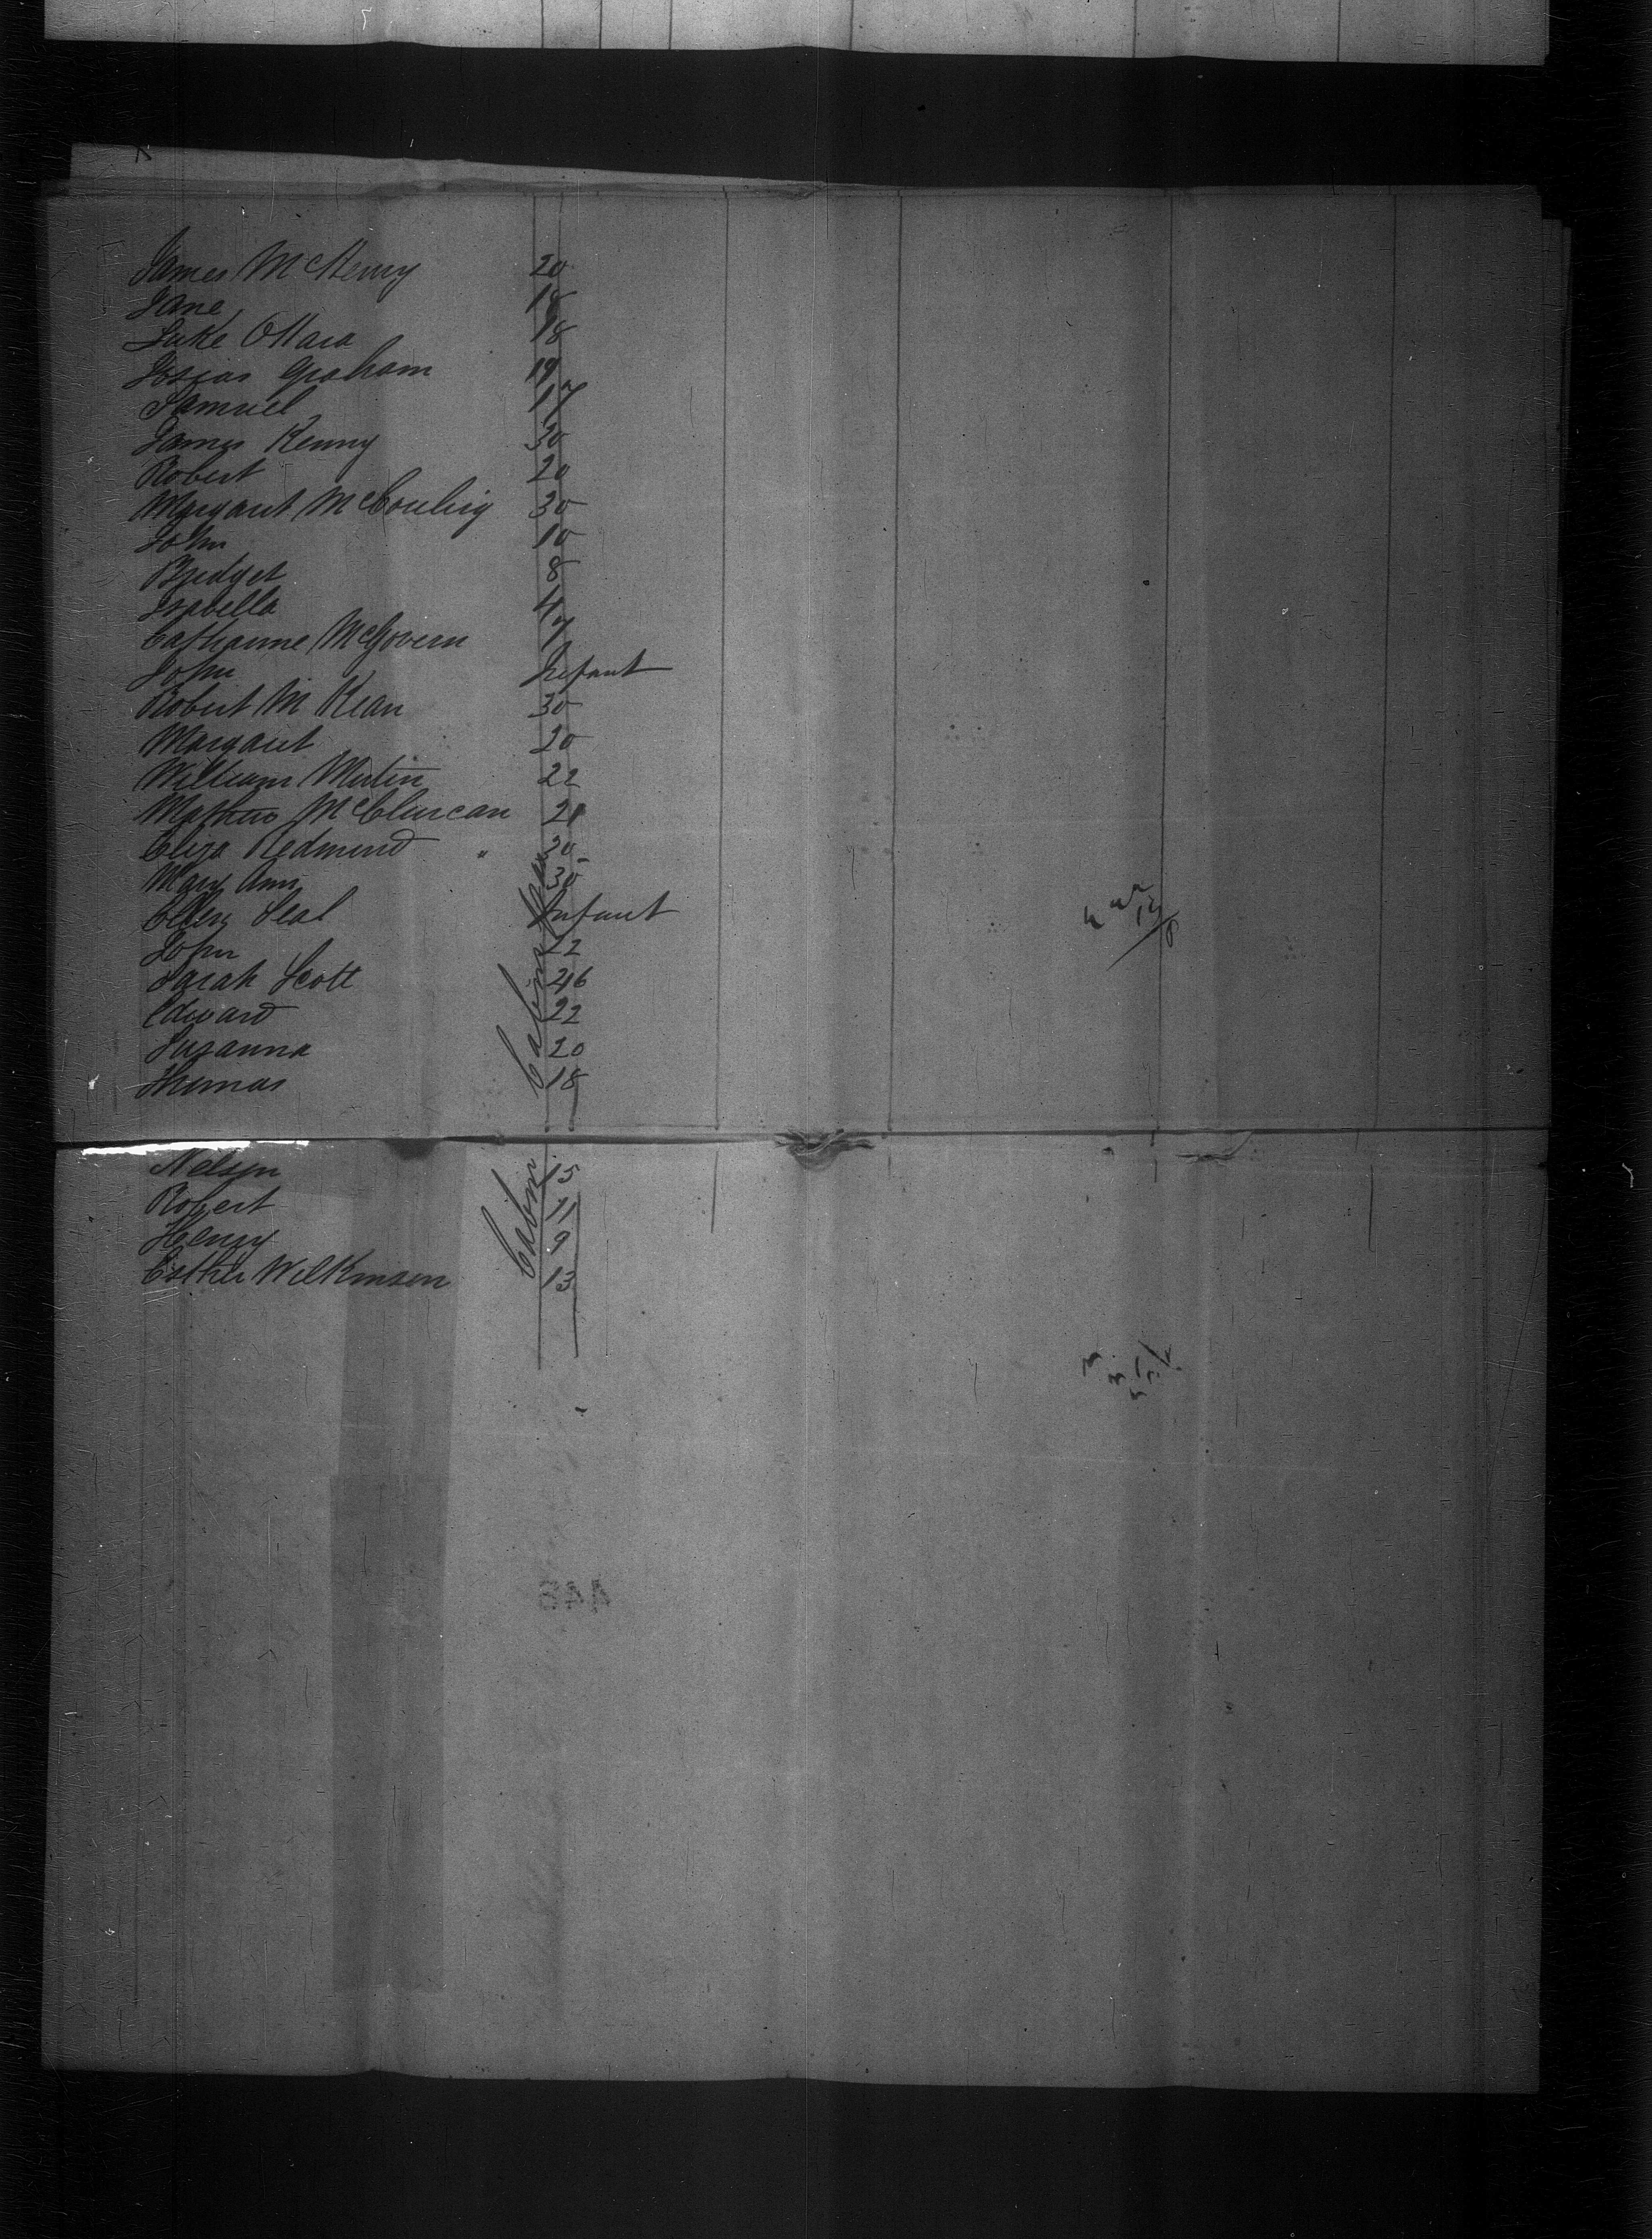 James McHenry 20
Jane 18
Luke OHara 18
Josias Graham 19
Samuel 17
James Kenny 30
Robert 20
Margaret 30
John 10
Bridget 8
Isabella 4
Catharine McGovern 7
John Infant
Robert M Kean 30
Margaret 20
William 22
Mathew 21
Eliza Redmond " 20
Mary Ann 30
Ellen Infant
John 22
Sarah Scott 46
Edward 22
Susanna 20
Thomas 18
Cabin
Nelson 15
Robert 11
Henry 9
Esther Wilkinson 13
Cabin
448